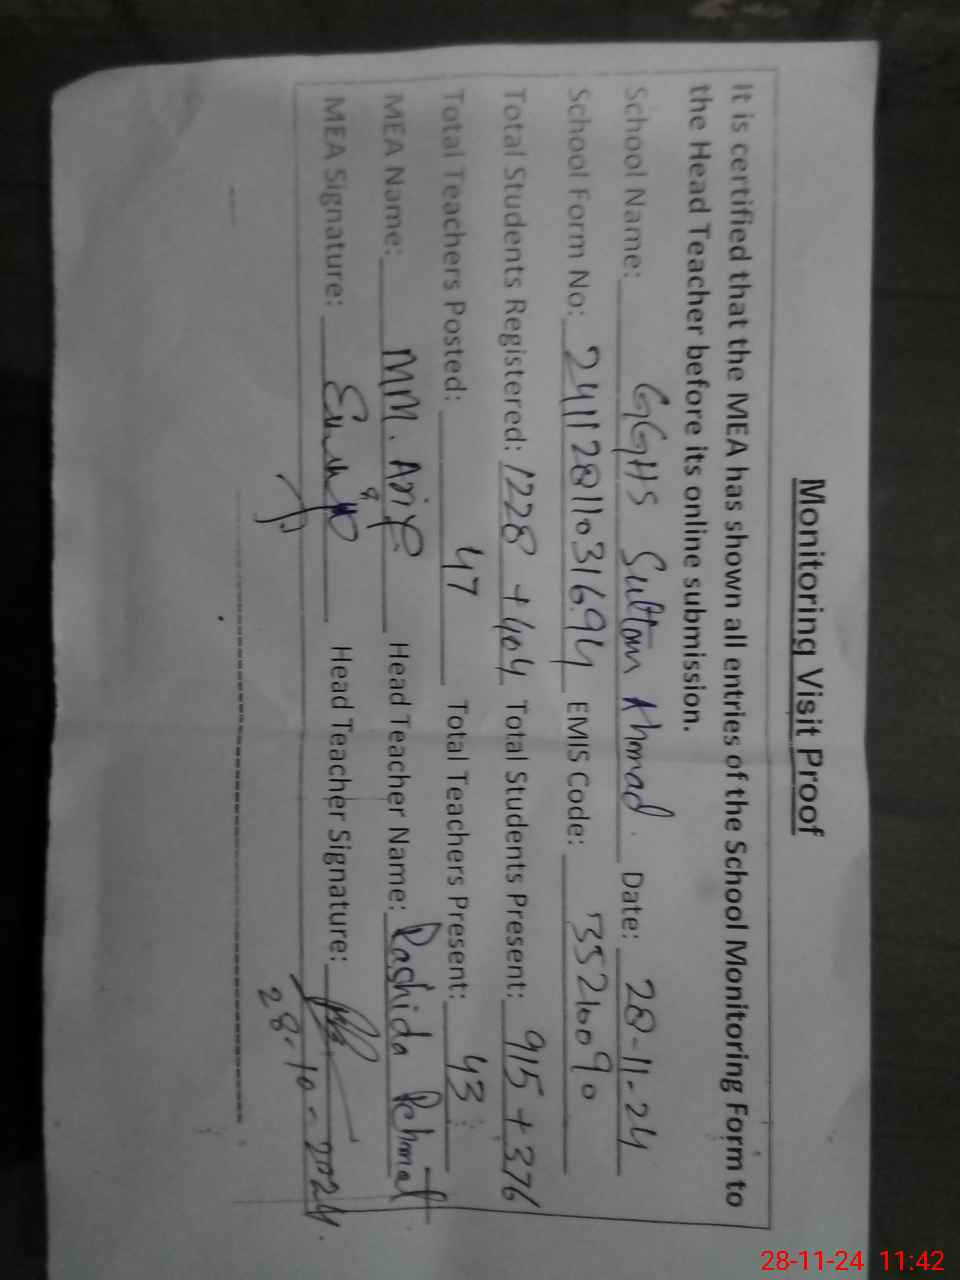 Monitoring Visit Proof
It is certified that the MEA has shown all entries of the School Monitoring Form to
the Head Teacher before its online submission.
School Name: GGHS Sultan Ahmad. Date: 28-11-24
School Form No: 24112811031694 EMIS Code: 35210090
Total Students Registered: 1228 + 404 Total Students Present: 915 + 376
Total Teachers Posted: 47 Total Teachers Present: 43
MEA Name: MM. Arif Head Teacher Name: Rashida Rehmat
MEA Signature: Head Teacher Signature:
28-10-2024.
28-11-24 11:42